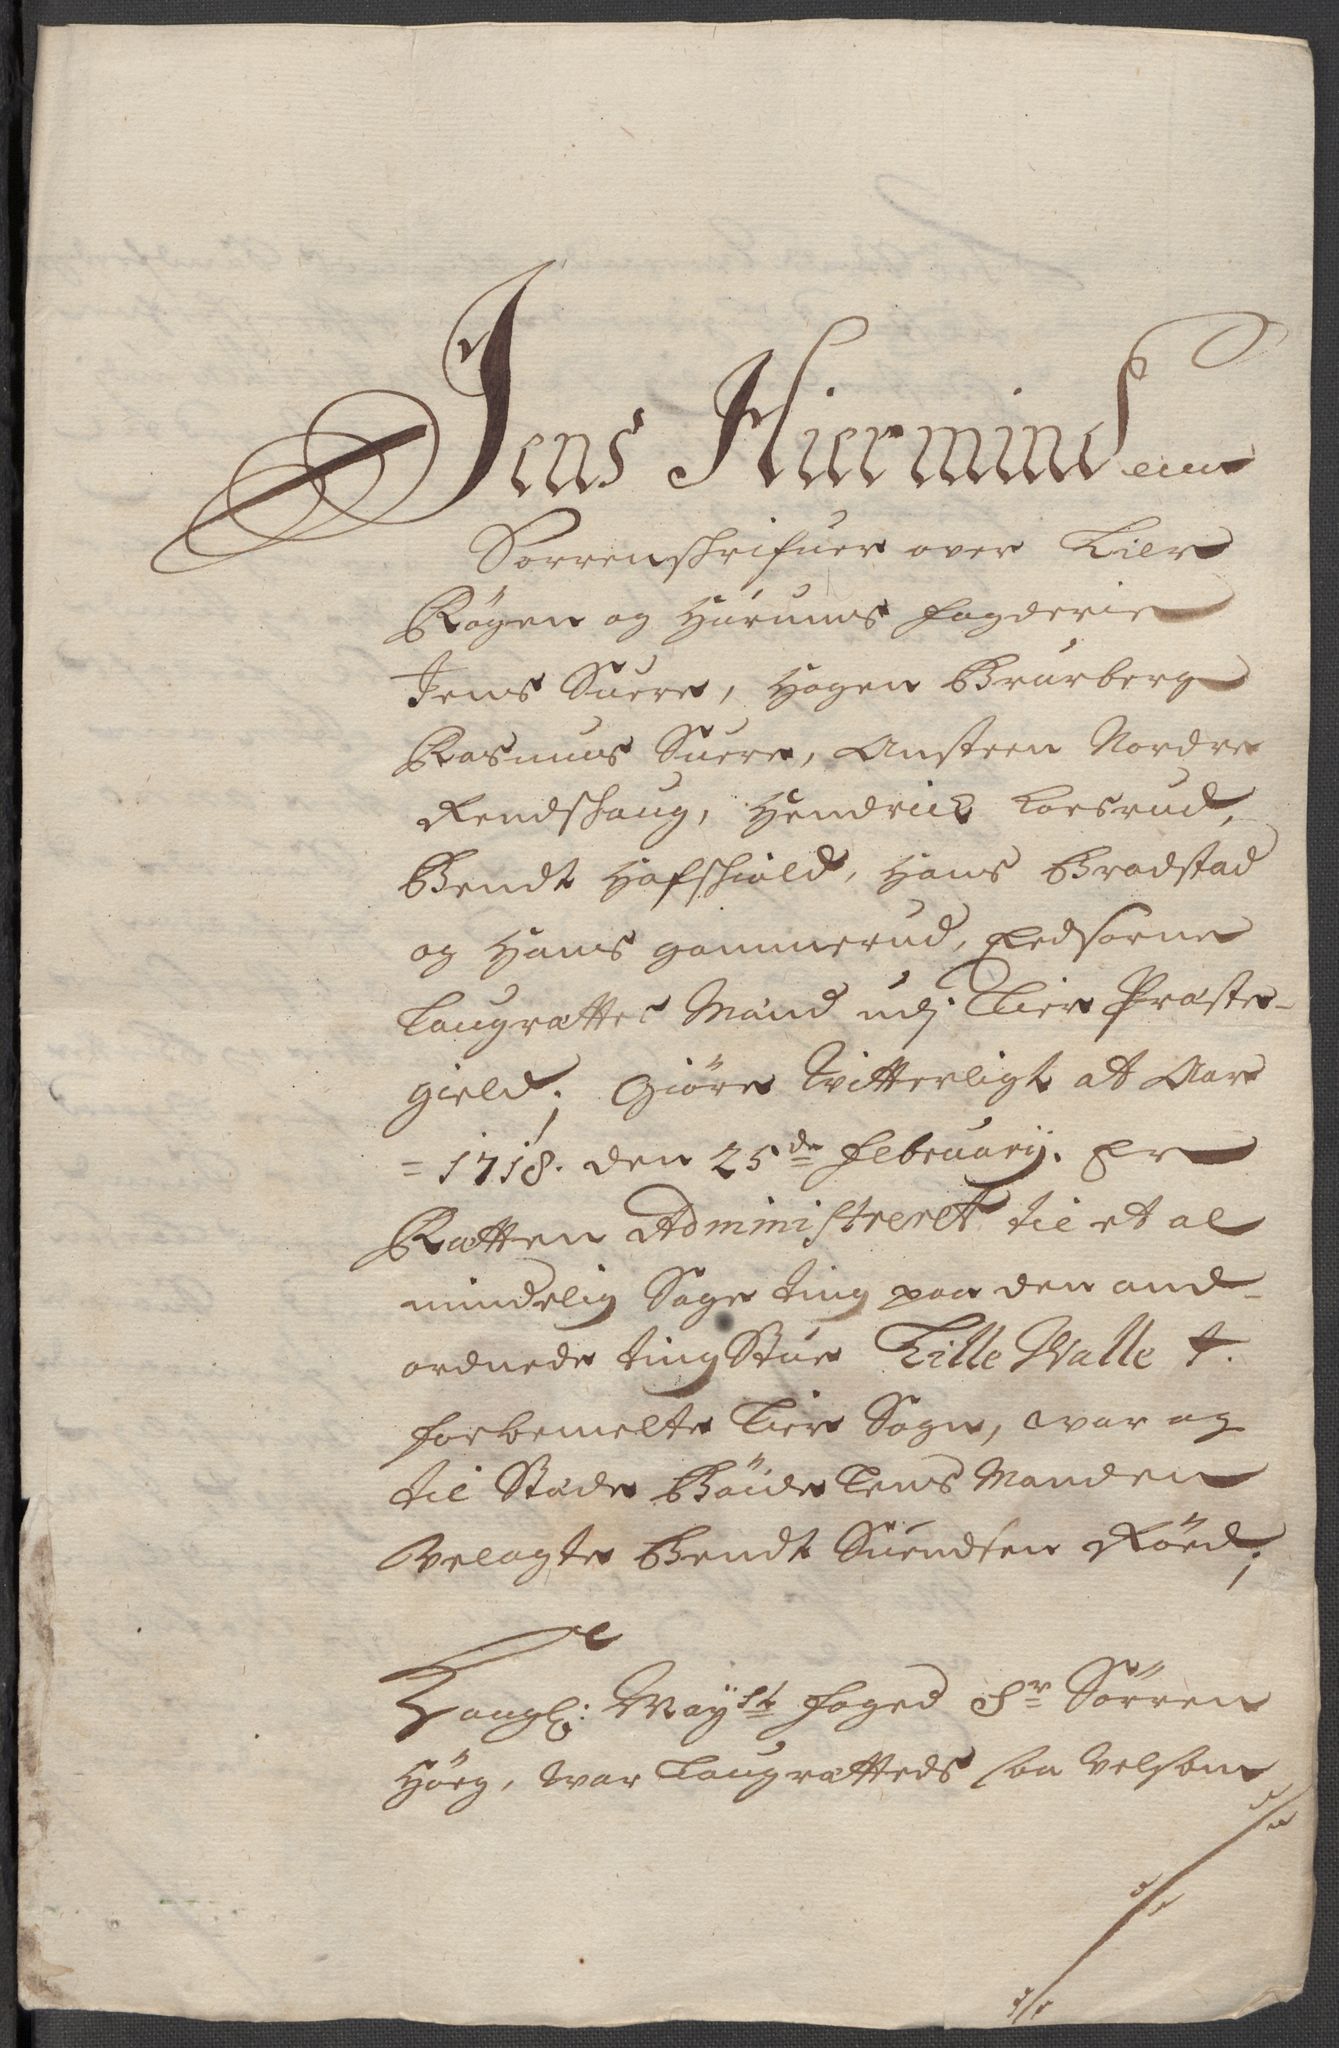 Jens Hiermind sen
Sorrenschrifuer over Lier
Røgen og Hurums fogderie
Jens Suere, Hagen Brurberg
Rasmus Suere, Ansteen Nordre
Rendschaug, Hendrick Loesrud,
Bendt Hafschiold, Hans Bradstad
og Hans Gammerud, Eedsorne
Laugrættes Mænd udj Lier Præste-
gield; Giøre Witterligt at Aar
= 1718. den 25de February. Er
Rætten Administreret til et al
mindelig Sage ting paa den and-
ordnede ting Stue Lille Walle J.
forbemelte Lier Sogn, war og
til Stæde Bøide Lens Manden
Welagte Bendt Suendsen Røed;
Kongl: Mayst. foged Sr Sørren
Høeg, war Laugrætteds saa Velsom